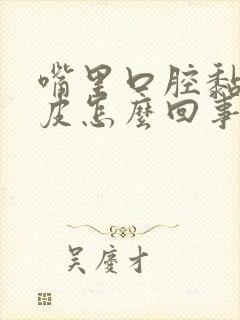 嘴里口腔黏
皮怎麼回事
吴慶才